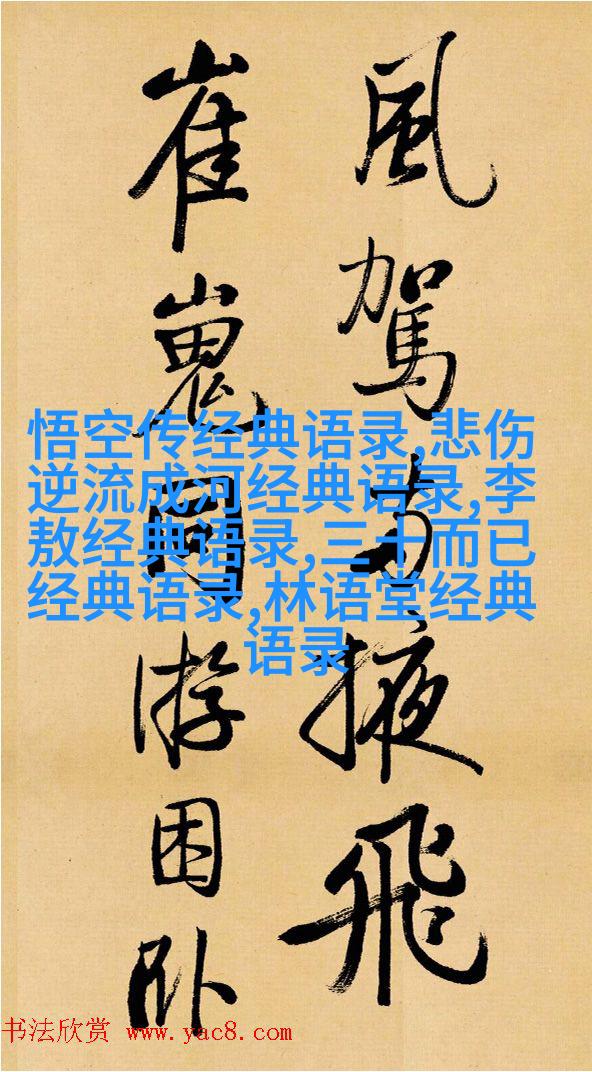 風駕掖飛
崔嵬同游困卧
悟空传经典语录,悲伤
逆流成河经典语录,李
敖经典语录,三十而已
经典语录,林语堂经典
语录
书法欣赏 www.yac8.com